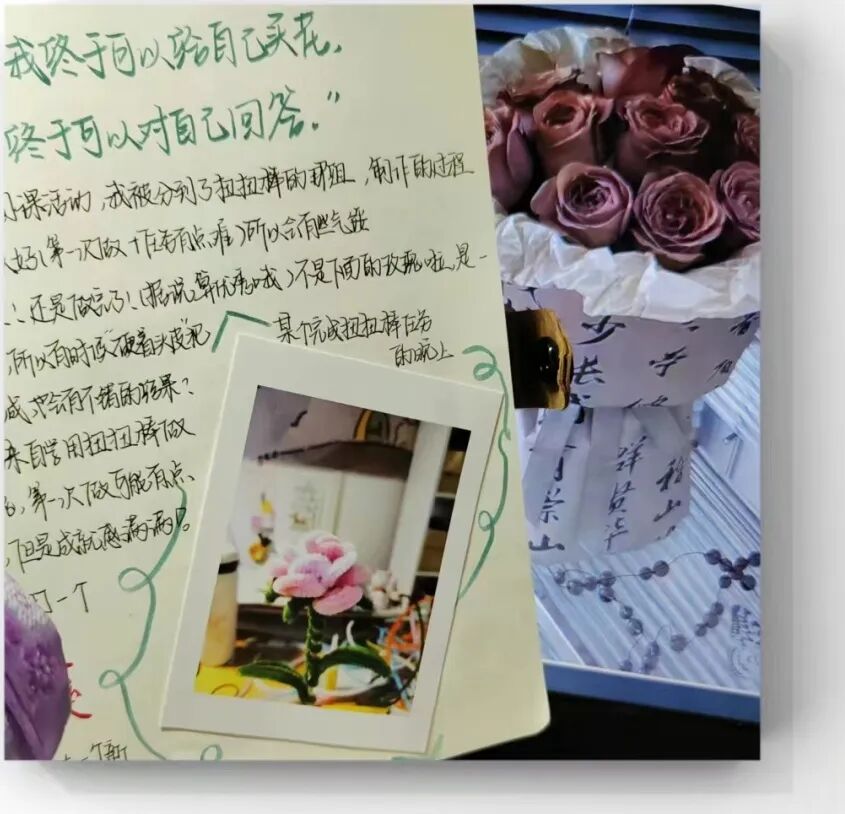 我终于可以给自己买花，
终于可以对自己回答。”
小课活动，我被分到了扭扭棒的那组，制作的过程
好(第一次做 有点难)所以会有些气馁
还是做完了！(据说算优秀哦)不是下面的玫瑰啦，是一
某个完成扭扭棒任务
的晚上
，所以有时候“硬着头皮”把
成，会有不错的结果？
来自学用扭扭棒做
，第一次做可能有点
，但是成就感满满！。
一个
一个新
少
长
有
崇
山
群
贤
毕
稽
山